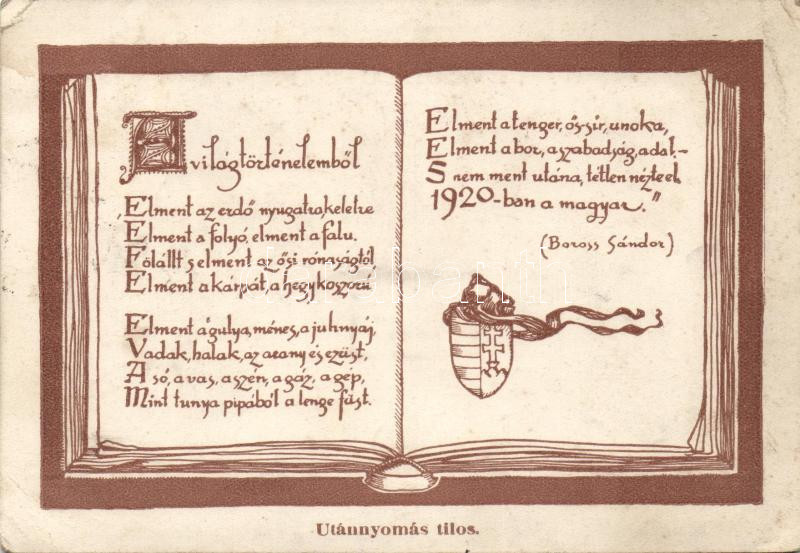 A világtörténelemből
„Elment az erdő nyugatra, keletre
Elment a folyó, elment a falu.
Fölállt s elment az ősi rónaságtól
Elment a kárpát, a hegykoszorú
Elment a gulya, ménes, a juhnyáj,
Vadak, halak, az arany és ezüst,
A só, a vas, a szén, a gáz, a gép,
Mint tunya pipából a lenge füst.
Elment a tenger, ős-sír, unoka,
Elment a bor, a szabadság, a dal -
S nem ment utána, tétlen nézte el
1920-ban a magyar."
(Boross Sándor)
Utánnyomás tilos.